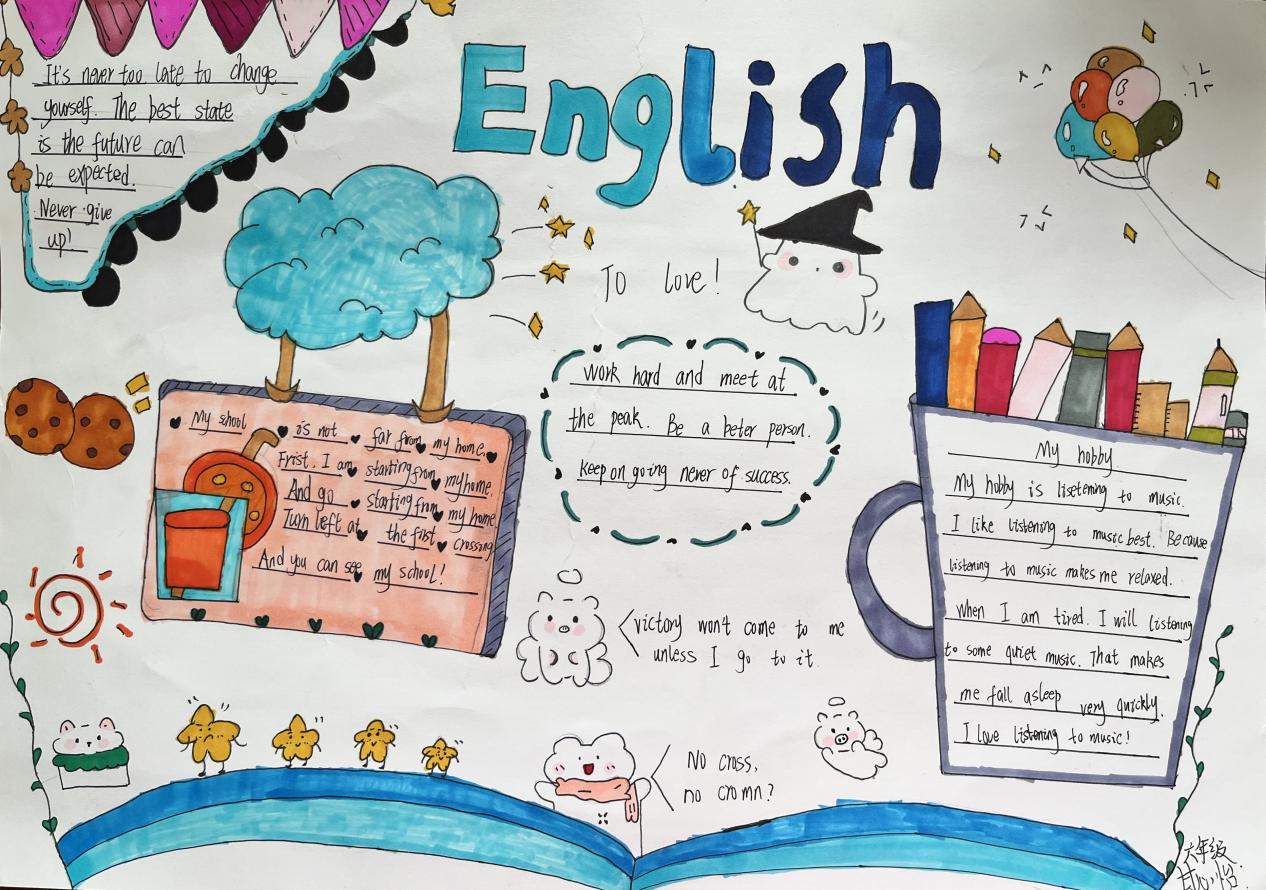 English
It's never too late to change
yourself. The best state
is the future can
be expected.
Never give
up!
To love!
Work hard and meet at
the peak. Be a beter person.
keep on going never of success.
My shool is not far from my home.
Frist. I am starting from my home.
And go starting from my home
Turn left at the first crossing
And you can see my school!
My hobby
My hobby is lisetening to music.
I like listening to music best. Because
listening to music makes me relaxed.
when I am tired. I will listening
to some quiet music. That makes
me fall asleep very quickly.
I love listening to music!
victory won't come to me
unless I go to it.
No cross,
no cromn?
六年级